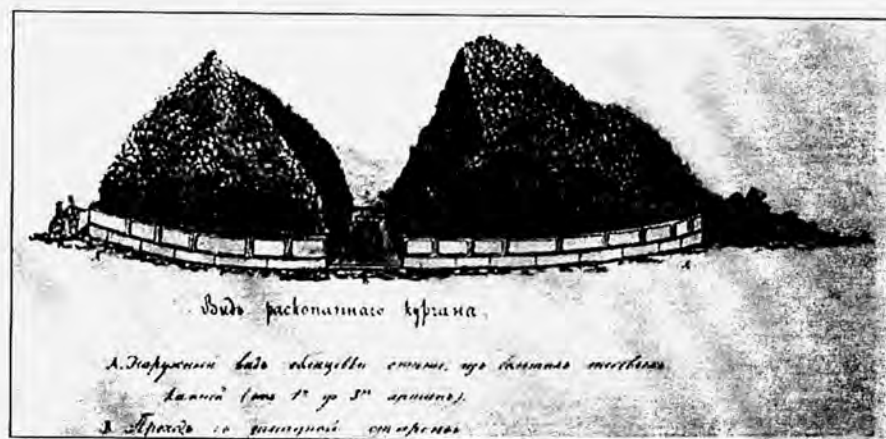 Видъ раскопаннаго кургана.
А. Наружный видъ облицовки стѣны, изъ большихъ тесовыхъ
камней (отъ 1го до 3хъ аршинъ).
В. Проходъ со западной стороны